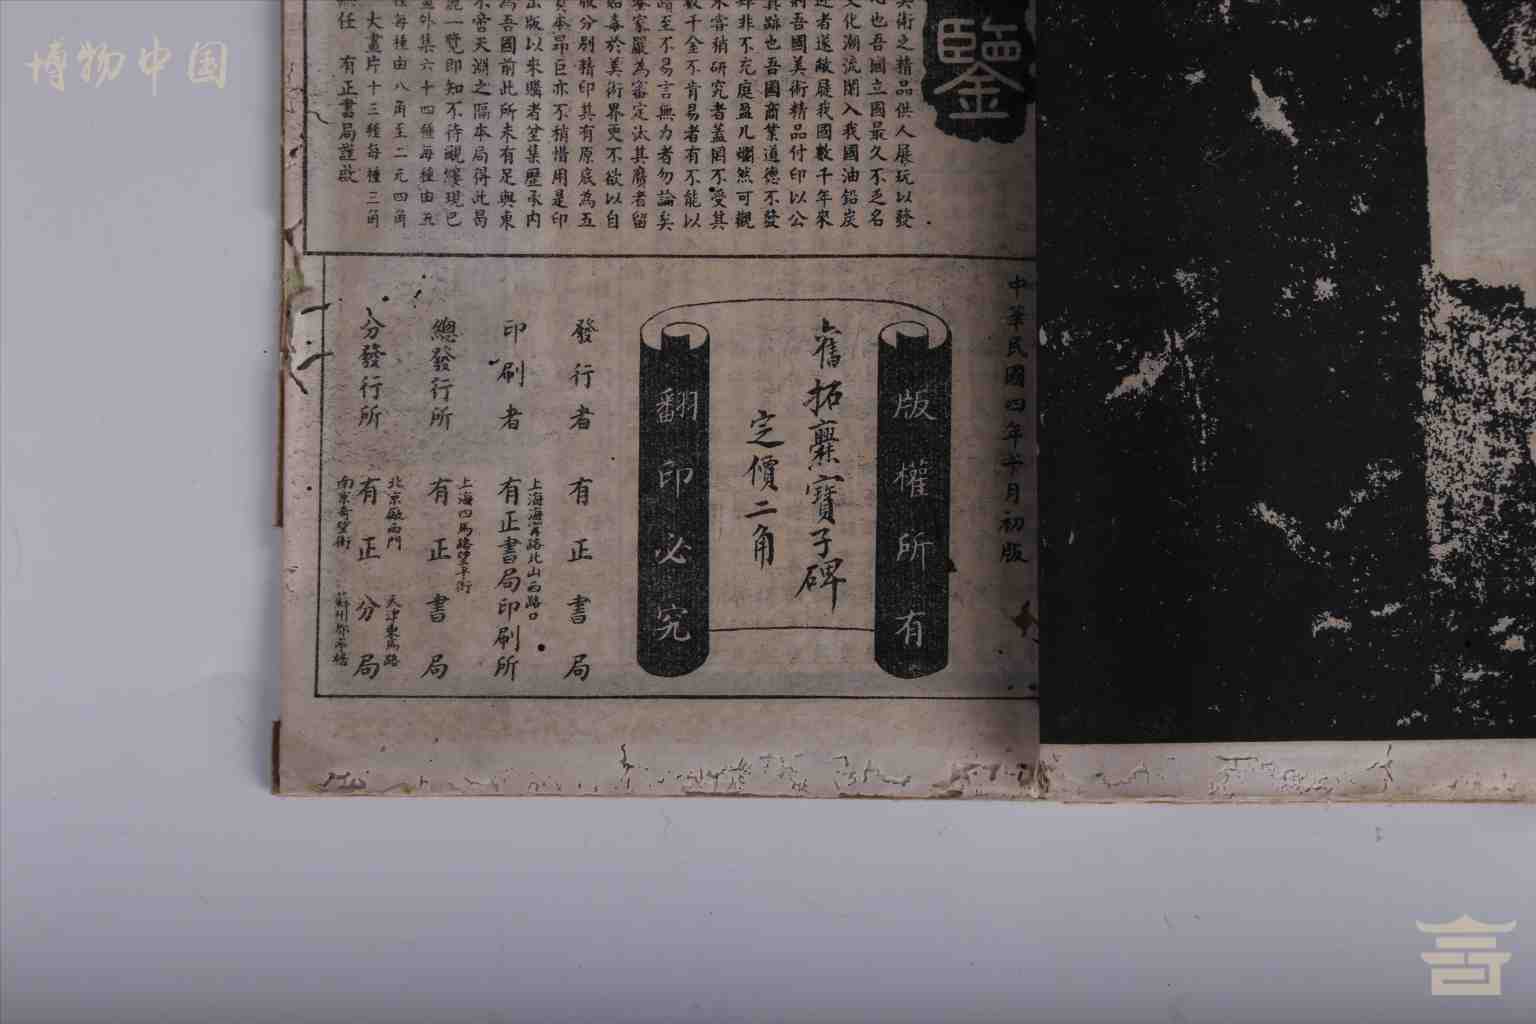 博物中国
鑒
美術之精品供人展玩以發
也吾國立國最久不乏名
文化潮流闌入我國油鉛炭
近者遂敝屣我國數千年來
則吾國美術精品付印以公
真跡也吾國商業道德不發
肆非不充庭盈几爛然可觀
未容稍研究者蓋罔不受其
數千金不肯易者有不能以
踏至不易言無力者勿論矣
鑒家嚴為審定汰其贗者留
貽毒於美術界更不欲以自
版分別精印其有原底為五
資本昂巨亦不稍惜用是印
出版以來購者坌集歷承内
為吾國前此所未有足與東
不啻天淵之隔本局得此曷
一覽即知不待覼縷現已
外集六十四種每種由五
種每種由八角至二元四角
大畫片十三種每種三角
無任 有正書局謹啟
中華民國四年十月初版
版權所有
舊拓爨寶子碑
定價二角
翻印必究
發行者 有正書局
上海海甯路北山西路口
印刷者 有正書局印刷所
上海四馬路望平街
總發行所 有正書局
北京廠西門 天津東馬路
分發行所 有正分局
南京奇望街 蘇州都亭橋